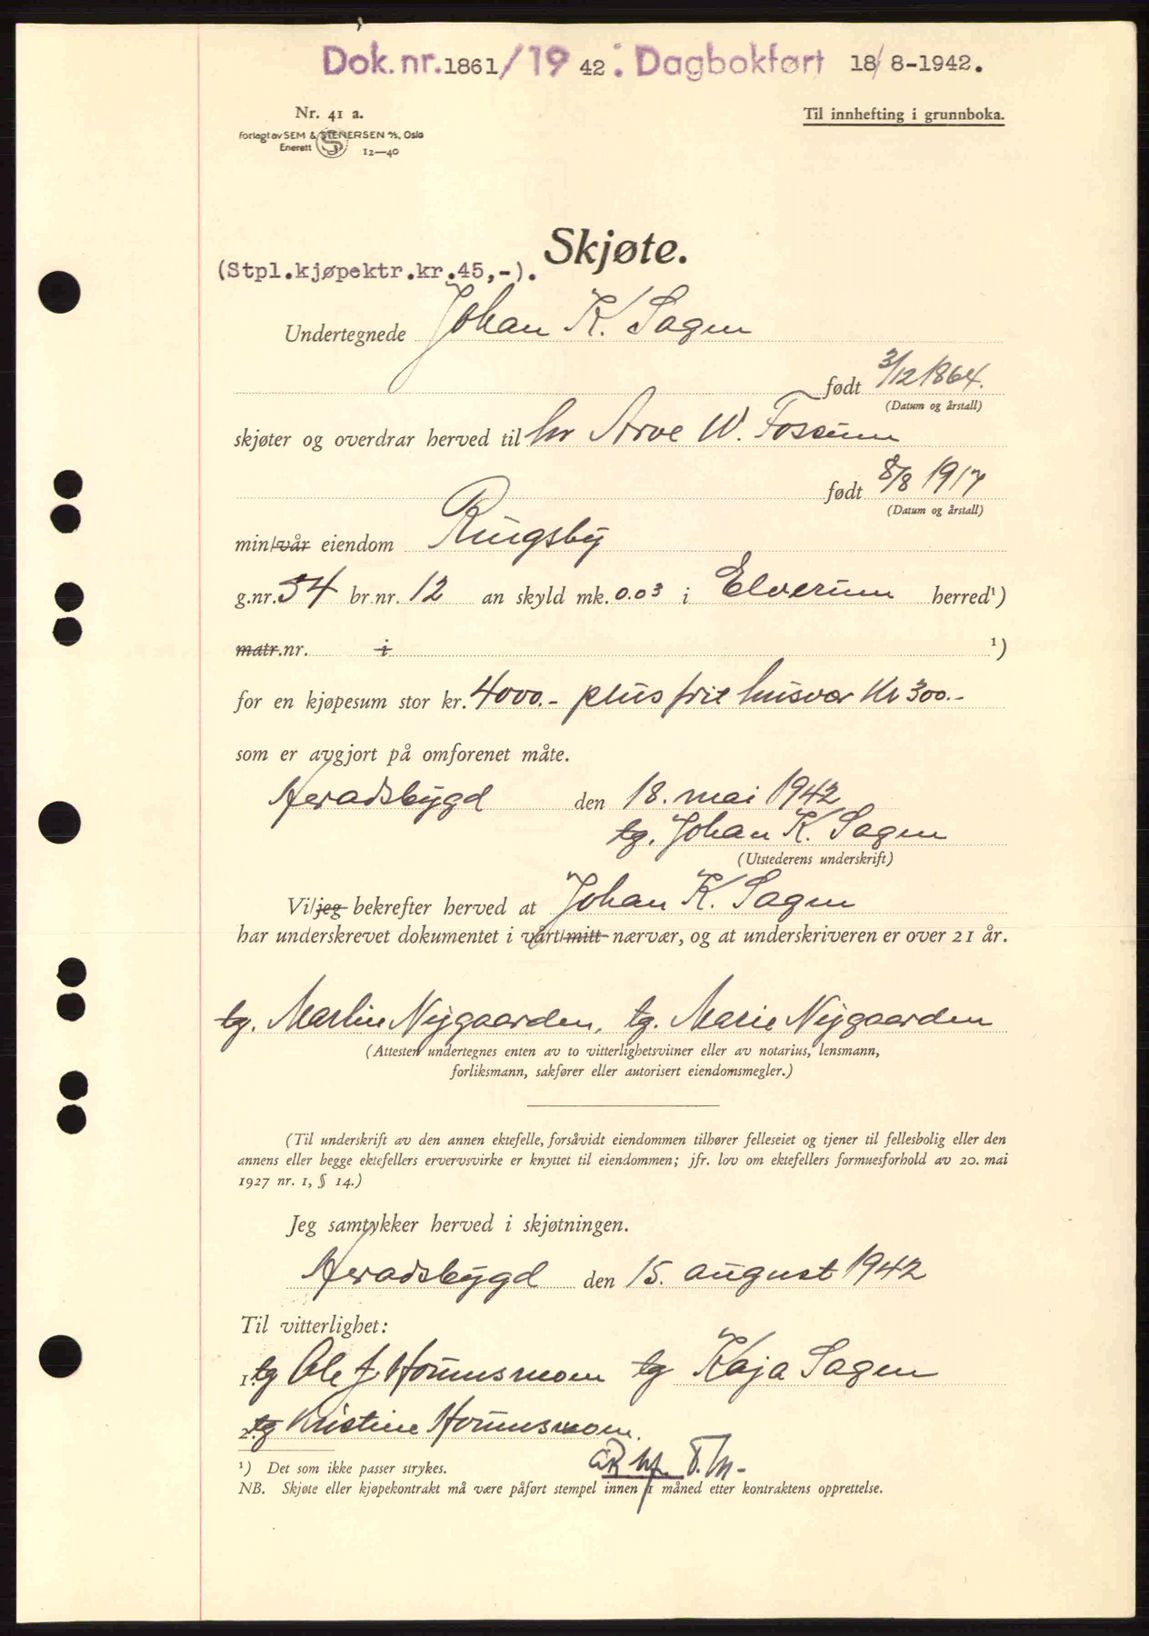 Dok. nr. 1861/19 42 : Dagbokført 18/8-1942.
Nr. 41 a.
Til innhefting i grunnboka.
Forlagt av SEM & STENERSEN A/S, Oslo
Enerett
12—40
Skjøte.
(Stpl.kjøpektr.kr.45,-).
Undertegnede Johan K. Sagen
født 3/12 1864.
(Datum og årstall)
skjøter og overdrar herved til hr Arve W. Fossum
født 8/8 1917
(Datum og årstall)
min/vår eiendom Ringsby
g.nr. 54 br.nr. 12 an skyld mk. 0.03 i Elverum herred¹)
matr.nr. i ¹)
for en kjøpesum stor kr. 4000.- plus frit husvær Kr 300.-
som er avgjort på omforenet måte.
Heradsbygd den 18. mai 1942
tg. Johan K. Sagen
(Utstederens underskrift)
Vi/jeg bekrefter herved at Johan K. Sagen
har underskrevet dokumentet i vårt/mitt nærvær, og at underskriveren er over 21 år.
tg. Martin Nygaarden, tg. Marie Nygaarden
(Attesten undertegnes enten av to vitterlighetsvitner eller av notarius, lensmann,
forliksmann, sakfører eller autorisert eiendomsmegler.)
(Til underskrift av den annen ektefelle, forsåvidt eiendommen tilhører felleseiet og tjener til fellesbolig eller den
annens eller begge ektefellers ervervsvirke er knyttet til eiendommen; jfr. lov om ektefellers formuesforhold av 20. mai
1927 nr. 1, § 14.)
Jeg samtykker herved i skjøtningen.
Heradsbygd den 15. august 1942
Til vitterlighet:
1. tg Ole J. Hornsmoen tg Kaja Sagen
2. tg Kristine Hornsmoen.
¹) Det som ikke passer strykes.
NB. Skjøte eller kjøpekontrakt må være påført stempel innen 1 måned etter kontraktens opprettelse.